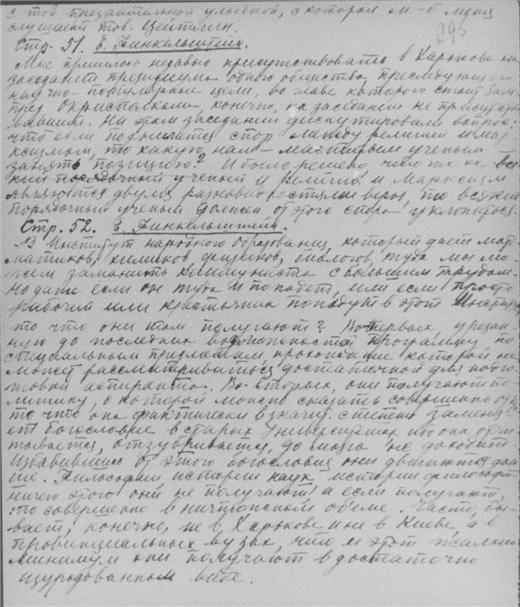 с той презрительной улыбкой, с которой м-б. муж
слушает тов. Цейтлин.
295
Стр. 51. т. Финкельштейн.
Мне пришлось недавно присутствовать в Харькове на
заседании президиума одного общества, преследующего
научно-популярные цели, во главе которого стоит зам
пред окрисполкома, конечно, на заседании не присутство
вавший. На этом заседании дискутировали вопрос:
что если поднимается спор между религией и мар
ксизмом, то какую нам - маститым ученым
занять позицию? И было решено, что так как вся
кий порядочный ученый и религия и марксизм
являются двумя разновидностями веры, то всякий
порядочный ученый должен от этого спора уклониться.
Стр. 52. т. Финкельштейн.
В Институт народного образования, который дает мате
матиков, химиков, физиков, биологов, туда мы мо
жем заманить коммуниста с большим трудом.
но даже если он туда и попадет, или если просто
рабочий или крестьянин попадут в этот Институт
то что они там получают? Во-первых, урезан
ную до последних возможностей программу по
специальным предметам, прохождение которой не
может рассматриваться достаточной для подго
товки аспиранта. Во-вторых, они получают по
литику, о которой можно сказать совершенно
то что она фактически в значит. степени заменя
ет богословие в старых Университетах ибо она
отзубривается, до мозга не доходит
Избавившись от этого богословия они двигаются даль
ше. Философии, истории наук, истории философии
ничего этого они не получают, а если получают,
то совершенно в ничтожном объеме. Часто бы
вает, конечно, не в Харькове или в Киеве, а в
провинциальных вузах, что и этот жалкий
минимум они получают в достаточно
изуродованном виде.